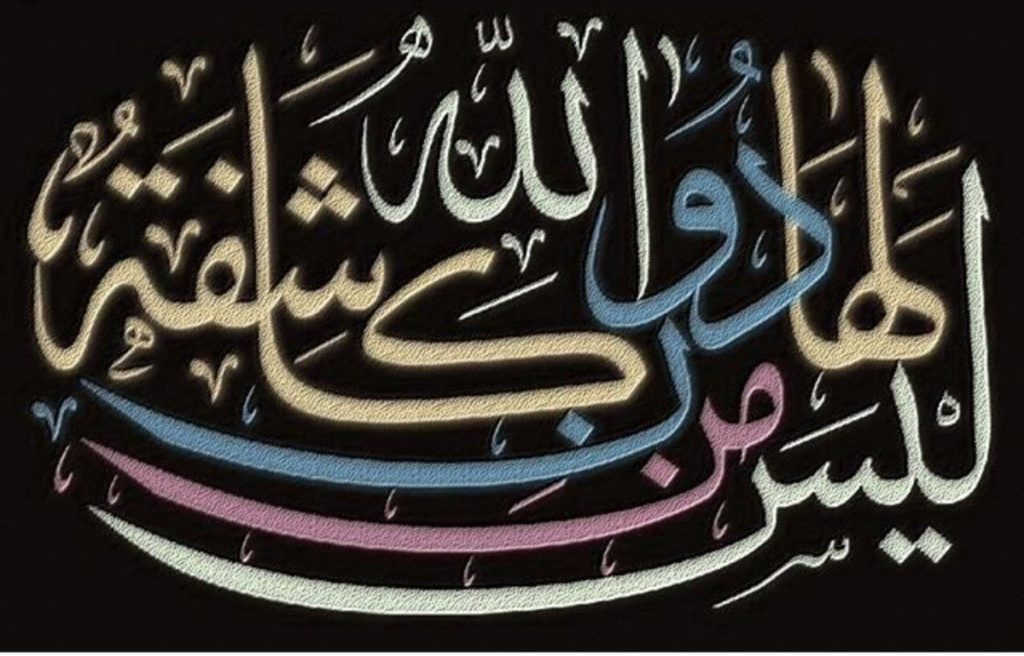 لَيْسَ لَهَا مِنْ دُونِ اللَّهِ كَاشِفَةٌ